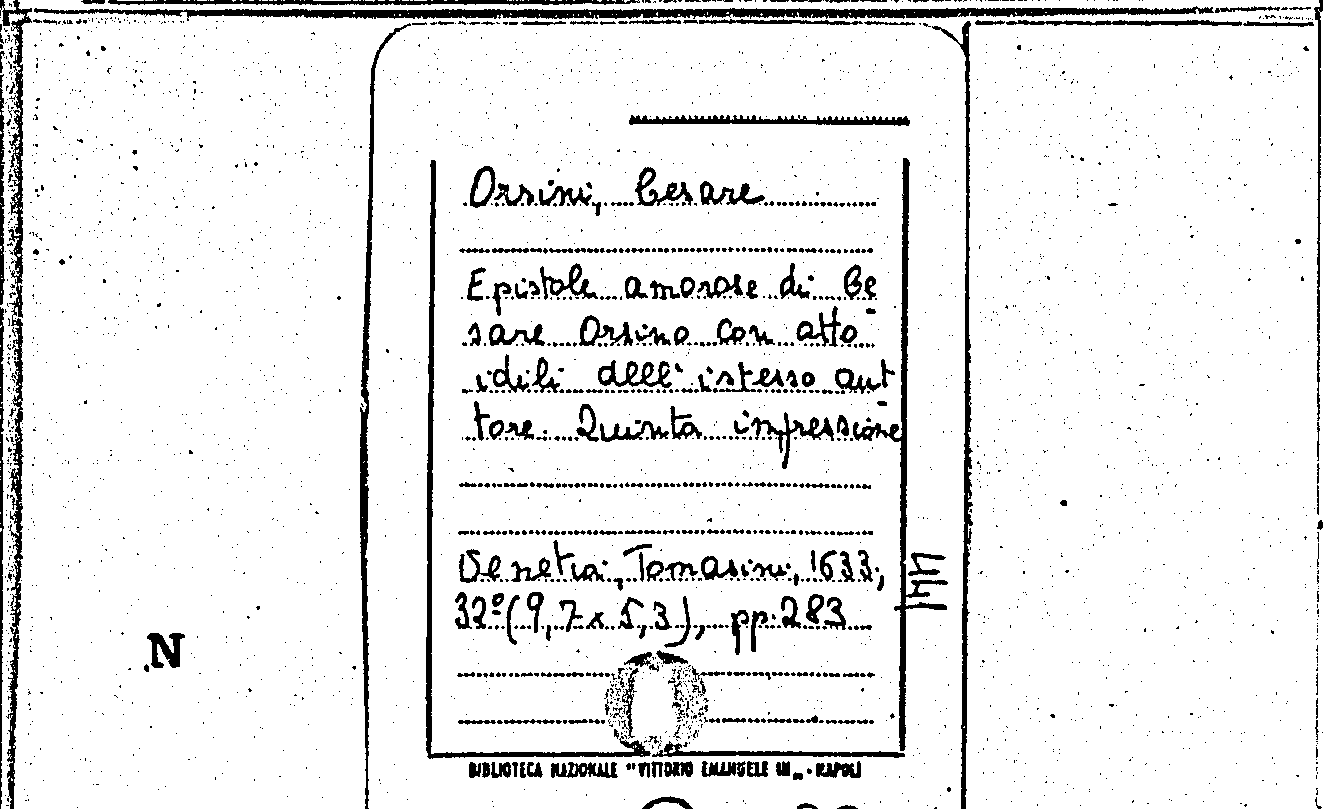 Orsini, Cesare
Epistole amorose di Ce
sare Orsino con otto
idili dell' istesso aut
tore. Quinta impressione
Venetia, Tomasini, 1633,
32º (9,7 x 5,3), pp. 283
N
BIBLIOTECA NAZIONALE "VITTORIO EMANUELE III" - NAPOLI